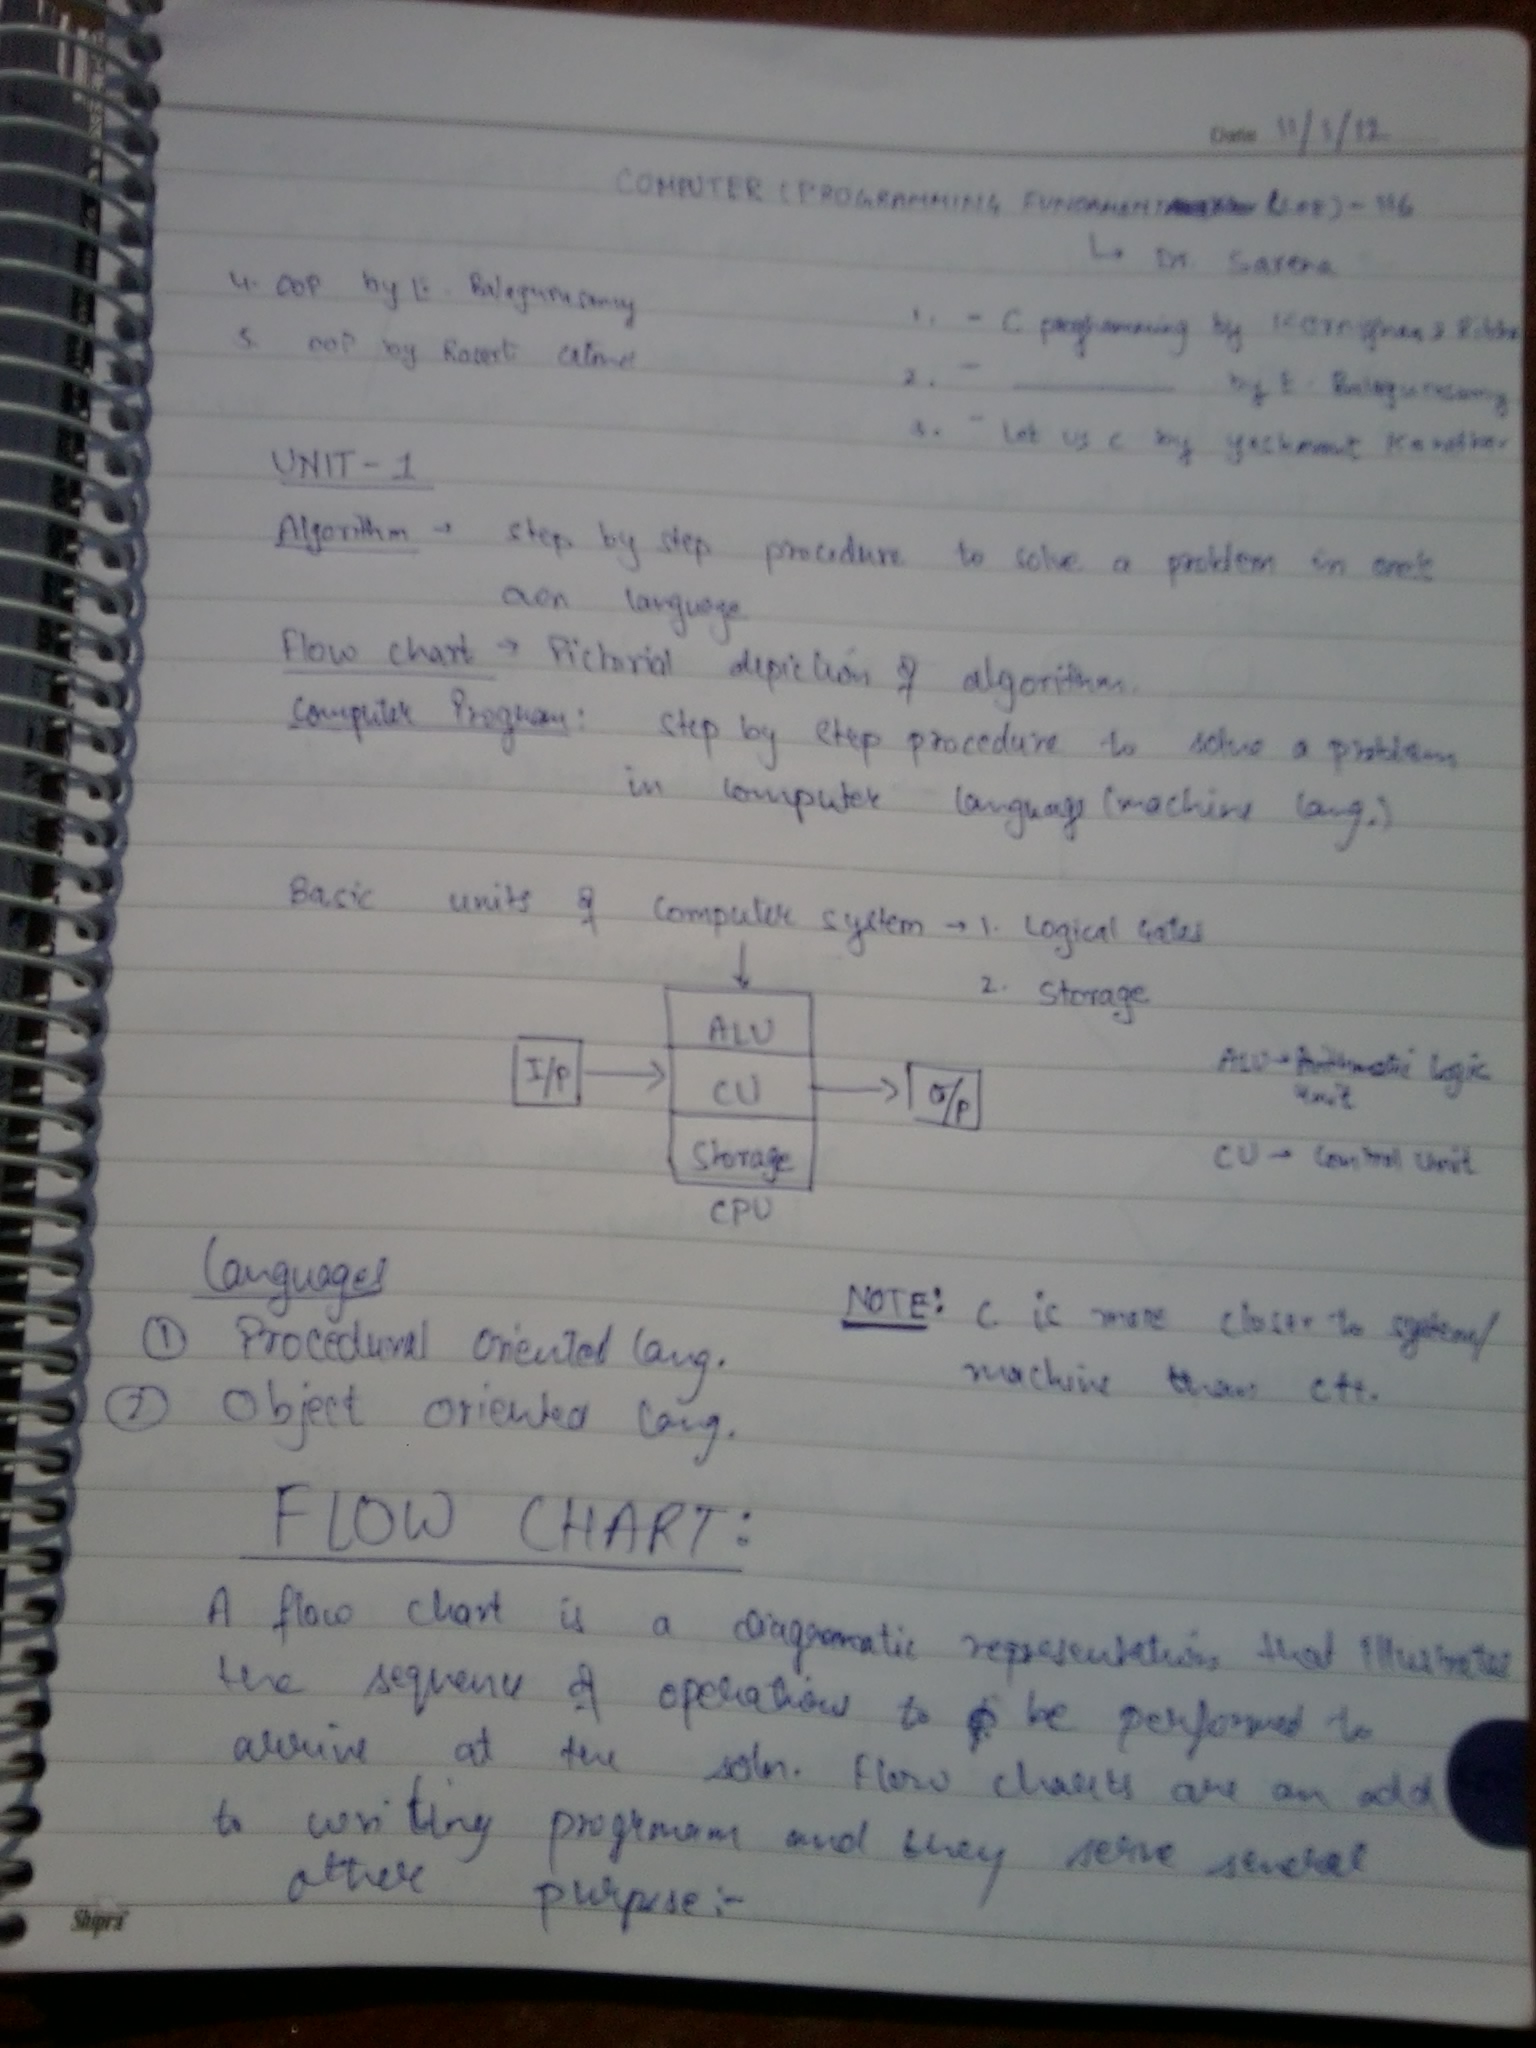 Date 11/1/12
COMPUTER PROGRAMMING
↳ Dr. Sarena
4. OOP by E. Balagurusamy
5. OOP by Robert
1. - C programming by Kernighan &
2. - ———— by E. Balagurusamy
3. - Let us C by Yashwant Kanetkar
UNIT - 1
Algorithm → step by step procedure to solve a problem in
language
Flow chart → Pictorial depiction of algorithm.
Computer Program: Step by step procedure to solve a problem
in computer language (machine lang.)
Basic units of computer system → 1. Logical Gates
2. Storage
ALU
I/P
CU
O/P
Storage
CPU
ALU → Arithmetic logic
unit
CU → Control Unit
Languages
① Procedural oriented lang.
② Object oriented lang.
NOTE: C is more closer to system/
machine than C++.
FLOW CHART:
A flow chart is a diagramatic representation that illustrates
the sequence of operations to be performed to
arrive at the soln. Flow charts are an add
to writing programam and they serve several
other purpose:-
Shipra